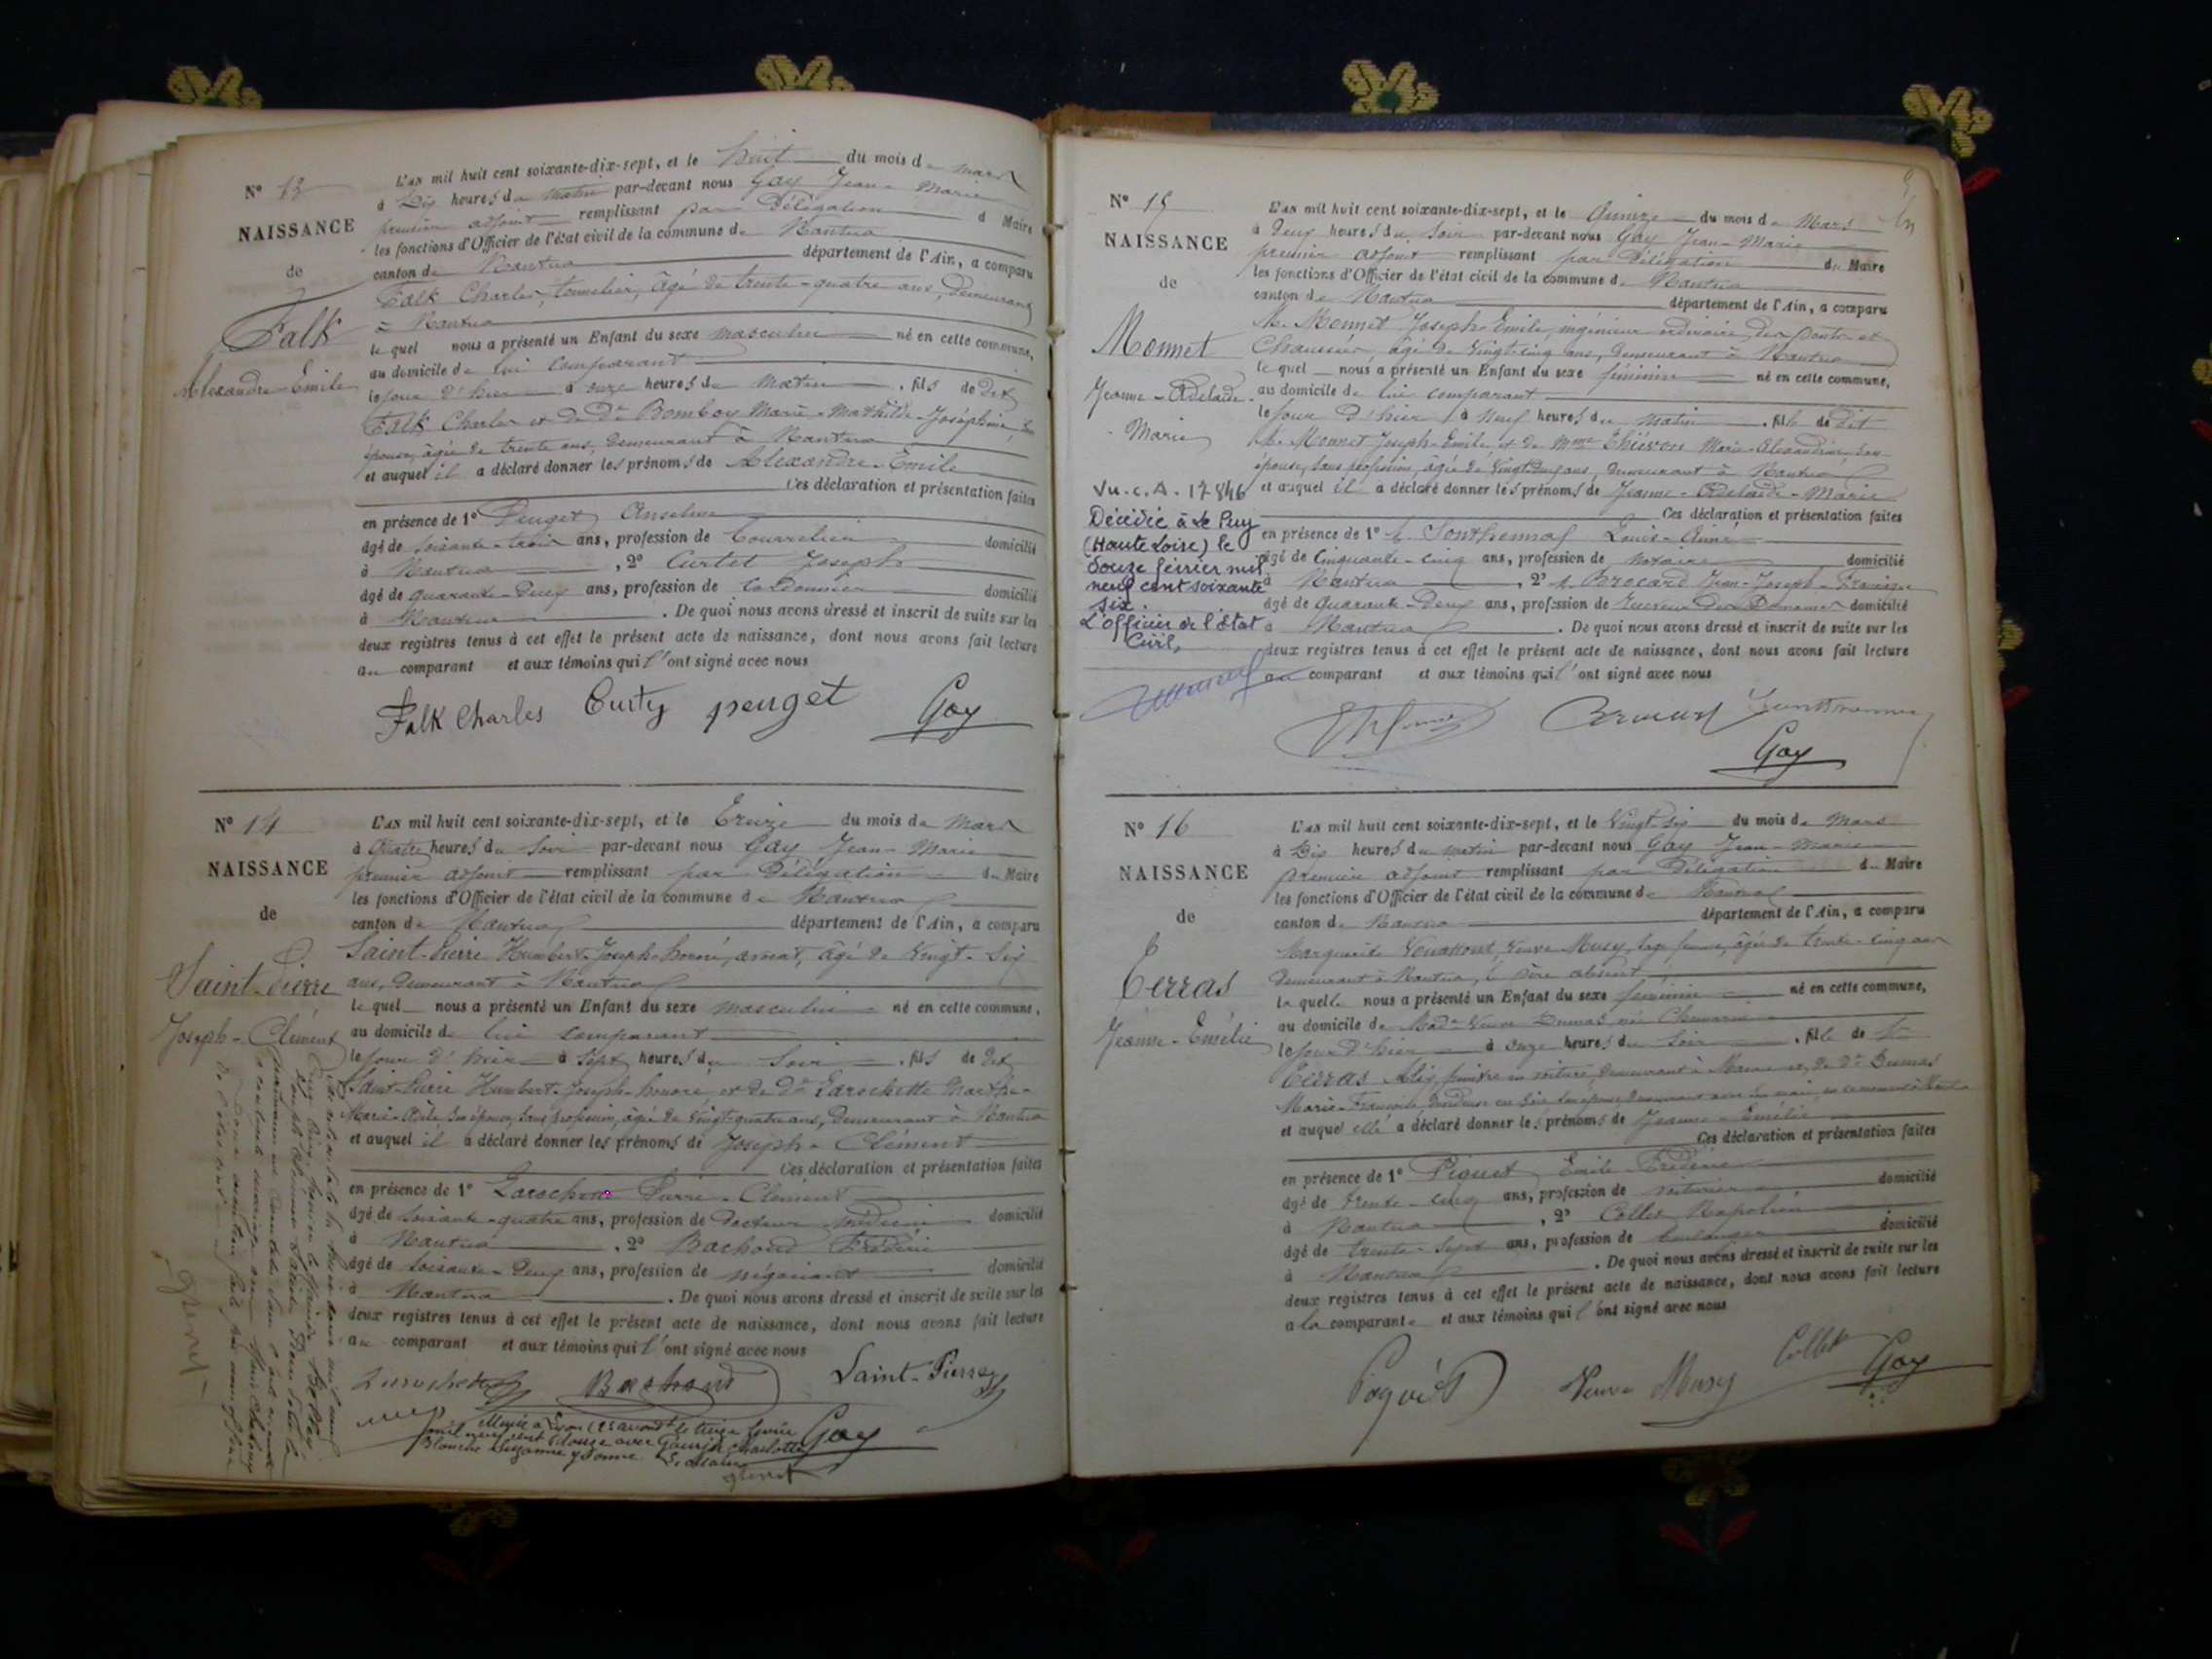 N° 13
NAISSANCE
de
Falk
Alexandre-Emile
L'AN mil huit cent soixante-dix-sept, et le huit du mois de mars
à Dix heures du matin par-devant nous Gay Jean-Marie
premier adjoint remplissant par Délégation d Maire
les fonctions d'Officier de l'état civil de la commune de Nantua
canton de Nantua département de l'Ain, a comparu
Falk Charles, tonnelier, âgé de trente-quatre ans, demeurant
à Nantua
le quel nous a présenté un Enfant du sexe masculin né en cette commune,
au domicile de lui comparant
le jour d'hier à onze heures du matin, fils de dit
Falk Charles et de De Bomboy Marie-Mathilde-Joséphine, son
épouse, âgée de trente ans, demeurant à Nantua
et auquel il a déclaré donner les prénoms de Alexandre-Emile
Ces déclaration et présentation faites
en présence de 1° Peuget Anselme
âgé de soixante- ans, profession de Bourrelier domicilié
à Nantua, 2° Curtet Joseph
âgé de quarante-deux ans, profession de Cordonnier domicilié
à Nantua. De quoi nous avons dressé et inscrit de suite sur les
deux registres tenus à cet effet le présent acte de naissance, dont nous avons fait lecture
au comparant et aux témoins qui l'ont signé avec nous
Falk Charles Curty peuget Gay
N° 14
NAISSANCE
de
Saint-Pierre
Joseph-Clément
L'AN mil huit cent soixante-dix-sept, et le Treize du mois de Mars
à Quatre heures du Soir par-devant nous Gay Jean-Marie
premier adjoint remplissant par Délégation du Maire
les fonctions d'Officier de l'état civil de la commune de Nantua
canton de Nantua département de l'Ain, a comparu
Saint-Pierre Humbert-Joseph-honoré, avocat, âgé de Vingt-Six
ans, demeurant à Nantua
le quel nous a présenté un Enfant du sexe masculin né en cette commune,
au domicile de lui comparant
le jour d'hier à Sept heures du Soir, fils de dit
Saint-Pierre Humbert-Joseph-honoré, et de De Larochette Marthe-
Marie-Adèle, son épouse, sans profession, âgée de vingt-quatre ans, demeurant à Nantua
et auquel il a déclaré donner les prénoms de Joseph-Clément
Ces déclaration et présentation faites
en présence de 1° Larochette Pierre-Clément
âgé de soixante-quatre ans, profession de Docteur médecin domicilié
à Nantua, 2° Bachoud Frédéric
âgé de soixante-deux ans, profession de négociant domicilié
à Nantua. De quoi nous avons dressé et inscrit de suite sur les
deux registres tenus à cet effet le présent acte de naissance, dont nous avons fait lecture
au comparant et aux témoins qui l'ont signé avec nous
Larochette Bachoud Saint-Pierre
Marié à Lyon le treize
mil neuf cent douze avec Charlotte Gay
Blanche Suzanne Yvonne
N° 15
NAISSANCE
de
Monnet
Jeanne-Adelaïde-
Marie
Vu. c. A. 17846
Décédée à Le Puy
(Haute Loire) le
douze février mil
neuf cent soixante
six.
L'officier de l'état
Civil,
L'AN mil huit cent soixante-dix-sept, et le Quinze du mois de Mars
à Deux heures du Soir par-devant nous Gay Jean-Marie
premier adjoint remplissant par Délégation du Maire
les fonctions d'Officier de l'état civil de la commune de Nantua
canton de Nantua département de l'Ain, a comparu
M. Monnet Joseph-Emile, ingénieur ordinaire des Ponts et
Chaussées, âgé de vingt-cinq ans, demeurant à Nantua
le quel nous a présenté un Enfant du sexe féminin né en cette commune,
au domicile de lui comparant
le jour d'hier à Neuf heures du matin, fille de dit
M. Monnet Joseph-Emile, et de Mme Marie-Alexandrine, son
épouse, sans profession, âgée de vingt-deux ans, demeurant à Nantua
et auquel il a déclaré donner les prénoms de Jeanne-Adelaïde-Marie
Ces déclaration et présentation faites
en présence de 1° M. Sonthonnax Louis-Aimé
âgé de Cinquante-cinq ans, profession de notaire domicilié
à Nantua, 2° M. Brocard Jean-Joseph-François
âgé de Quarante-Deux ans, profession de Receveur des Domaines domicilié
à Nantua. De quoi nous avons dressé et inscrit de suite sur les
deux registres tenus à cet effet le présent acte de naissance, dont nous avons fait lecture
au comparant et aux témoins qui l'ont signé avec nous
Gay
N° 16
NAISSANCE
de
Terras
Jeanne-Emélie
L'AN mil huit cent soixante-dix-sept, et le Vingt-Six du mois de Mars
à Dix heures du matin par-devant nous Gay Jean-Marie
premier adjoint remplissant par Délégation du Maire
les fonctions d'Officier de l'état civil de la commune de Nantua
canton de Nantua département de l'Ain, a comparu
Marguerite, veuve Musy, sage femme, âgée de trente-cinq ans
demeurant à Nantua, le père absent
la quelle nous a présenté un Enfant du sexe féminin né en cette commune,
au domicile de Made Veuve Dumas née
le jour d'hier à onze heures du Soir, fille de Sr
Terras Alix, peintre en voiture, demeurant à et de De Dumas
Marie-Françoise,
et auquel elle a déclaré donner les prénoms de Jeanne-Emélie
Ces déclaration et présentation faites
en présence de 1° Piquet Emile-Frédéric
âgé de trente-cinq ans, profession de voiturier domicilié
à Nantua, 2° Collet Napoléon
âgé de trente-sept ans, profession de boulanger domicilié
à Nantua. De quoi nous avons dressé et inscrit de suite sur les
deux registres tenus à cet effet le présent acte de naissance, dont nous avons fait lecture
à la comparante et aux témoins qui l'ont signé avec nous
Veuve Musy Collet Gay